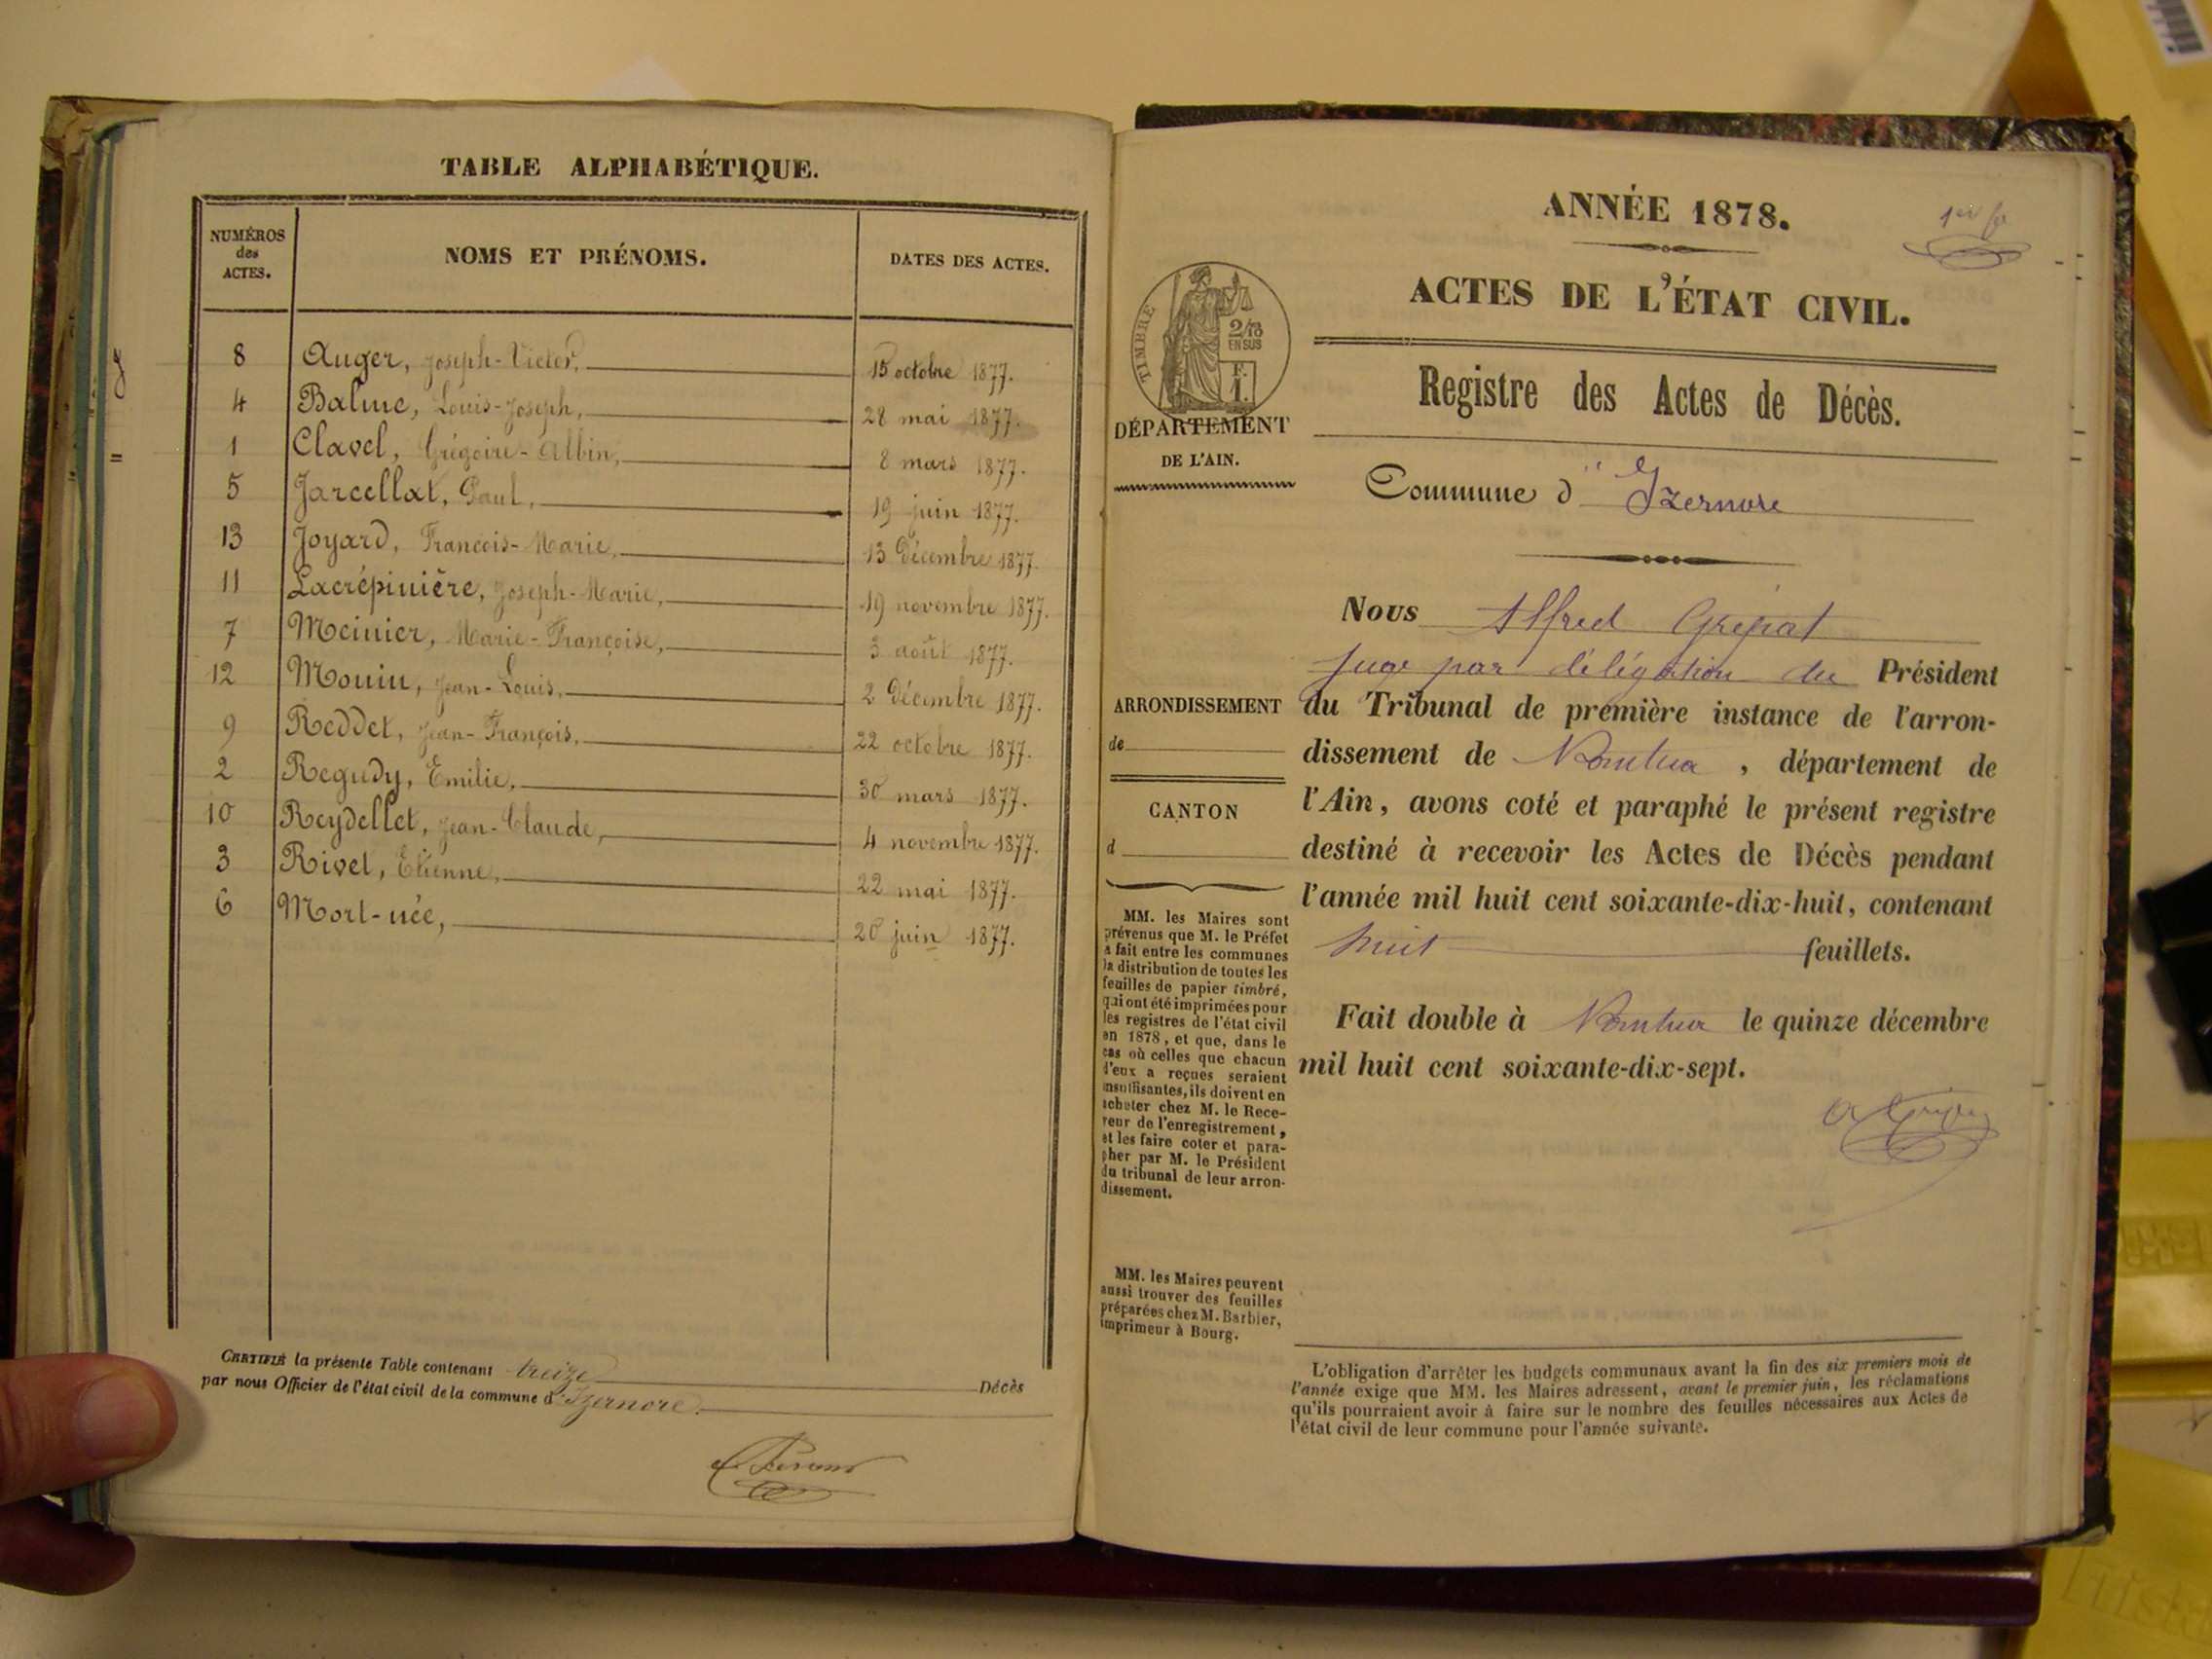 TABLE ALPHABÉTIQUE.
NUMÉROS des ACTES.
NOMS ET PRÉNOMS.
DATES DES ACTES.
8 Auger, Joseph-Victor, 15 octobre 1877.
4 Balme, Louis-Joseph, 28 mai 1877.
1 Clavel, Grégoire-Albin, 8 mars 1877.
5 Jarcellat, Paul, 19 juin 1877.
13 Joyard, François-Marie, 13 décembre 1877.
11 Lacrépinière, Joseph-Marie, 19 novembre 1877.
7 Meinier, Marie-Françoise, 3 août 1877.
12 Mouin, Jean-Louis, 2 décembre 1877.
9 Reddet, Jean-François, 22 octobre 1877.
2 Regudy, Emilie, 30 mars 1877.
10 Reydellet, Jean-Claude, 4 novembre 1877.
3 Rivet, Etienne, 22 mai 1877.
6 Mort-née, 20 juin 1877.
CERTIFIÉ la présente Table contenant treize Décès
par nous Officier de l'état civil de la commune d'Izernore.
ANNÉE 1878.
1er
ACTES DE L'ÉTAT CIVIL.
TIMBRE
2/10
EN SUS
F.
1.
Registre des Actes de Décès.
DÉPARTEMENT
DE L'AIN.
Commune d' Izernore
Nous Alfred Grépat
Juge par délégation du Président
du Tribunal de première instance de l'arron-
dissement de Nantua, département de
l'Ain, avons coté et paraphé le présent registre
destiné à recevoir les Actes de Décès pendant
l'année mil huit cent soixante-dix-huit, contenant
huit feuillets.
Fait double à Nantua le quinze décembre
mil huit cent soixante-dix-sept.
ARRONDISSEMENT
de
CANTON
d
MM. les Maires sont
prévenus que M. le Préfet
a fait entre les communes
la distribution de toutes les
feuilles de papier timbré,
qui ont été imprimées pour
les registres de l'état civil
en 1878, et que, dans le
cas où celles que chacun
d'eux a reçues seraient
insuffisantes, ils doivent en
acheter chez M. le Rece-
veur de l'enregistrement,
et les faire coter et para-
pher par M. le Président
du tribunal de leur arron-
dissement.
MM. les Maires peuvent
aussi trouver des feuilles
préparées chez M. Barbier,
imprimeur à Bourg.
L'obligation d'arrêter les budgets communaux avant la fin des six premiers mois de
l'année exige que MM. les Maires adressent, avant le premier juin, les réclamations
qu'ils pourraient avoir à faire sur le nombre des feuilles nécessaires aux Actes de
l'état civil de leur commune pour l'année suivante.